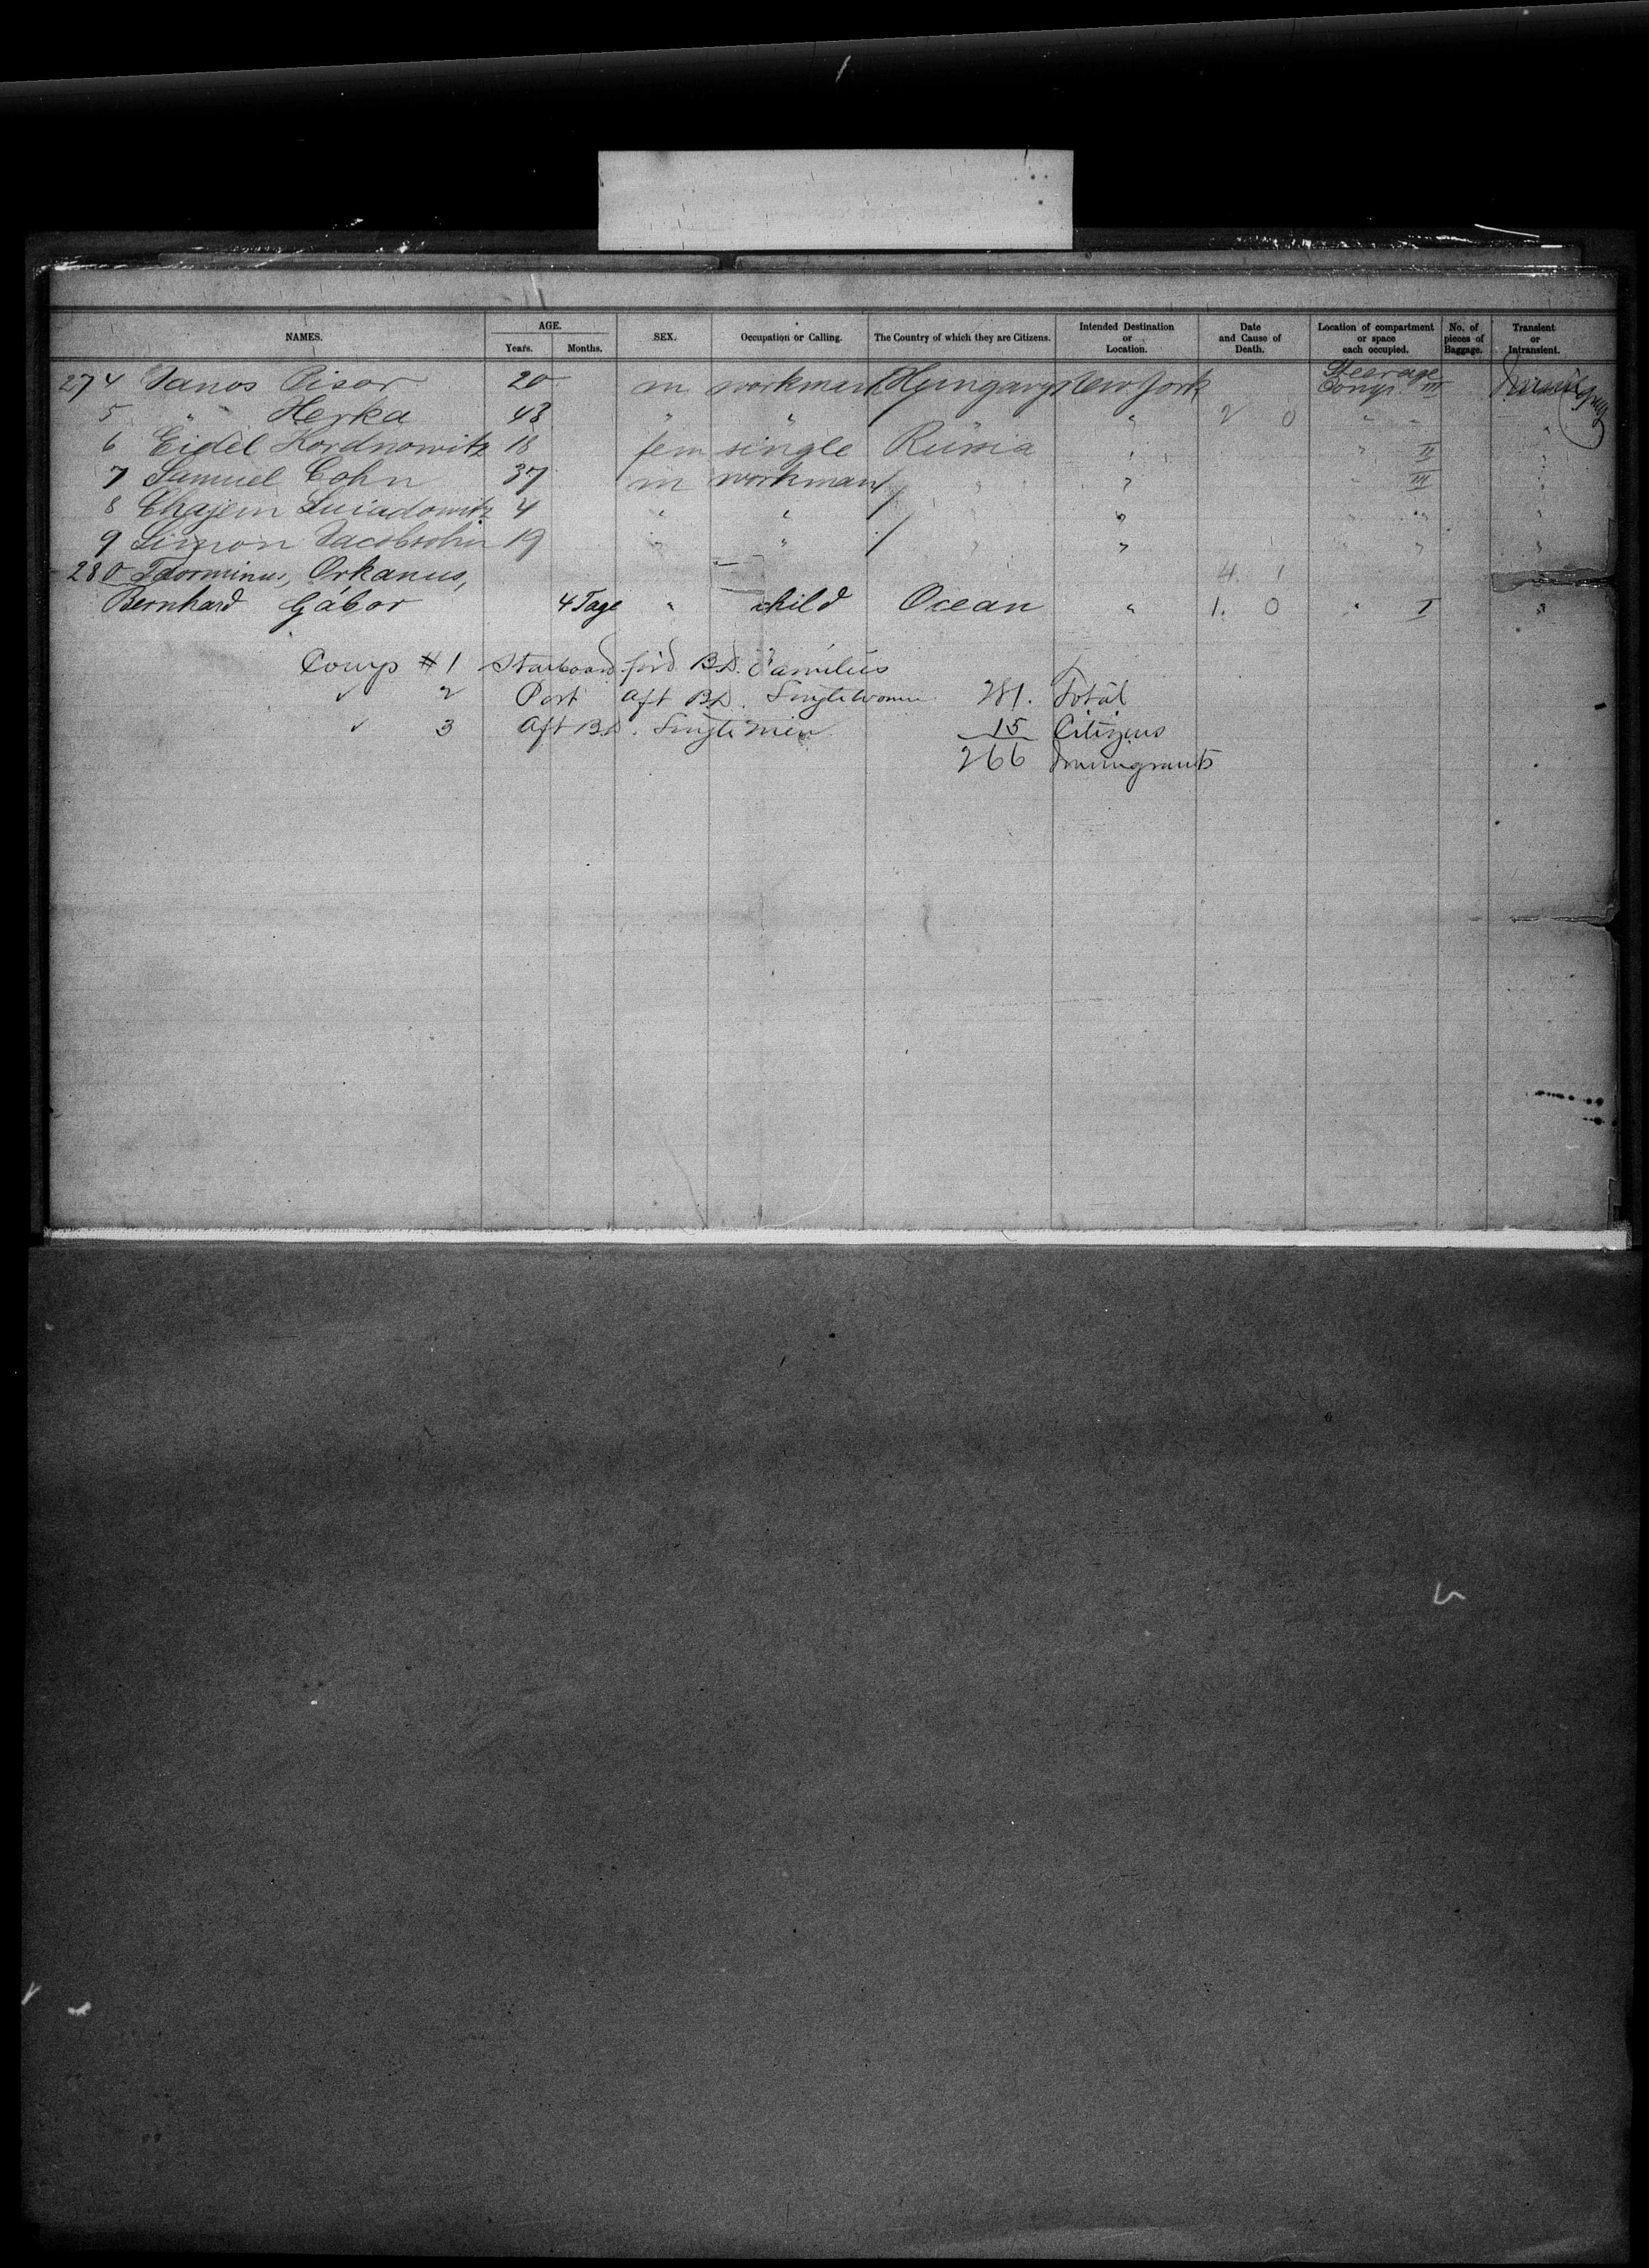 NAMES. AGE. Years. Months. SEX. Occupation or Calling. The Country of which they are Citizens. Intended Destination or Location. Date and Cause of Death. Location of compartment or space each occupied. No. of pieces of Baggage. Transient or Intransient.
274 Janos Pisar 20 m workman Hungary New York Steerage Comp. III
5 " " Herka 43 " " " 2 0 " " "
6 Eidel Kordnowitz 18 fem single Russia " " II "
7 Samuel Cohn 37 m workman " " " III "
8 Chajem 4 " " " " " "
9 Simon Jacobsohn 19 " " " " " " "
280 Orkanus, 4 1
Bernhard Gábor 4 Tage " child Ocean " 1. 0 " I "
Comp #1 Starboard fwd B.D. Families
✓ 2 Port aft B.D. Single women 281. Total
✓ 3 Aft B.D. Single men 15 Citizens
266 Immigrants